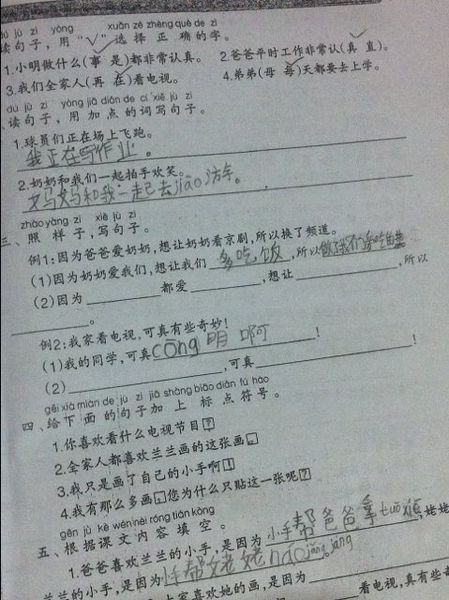 dú jù zi yòng xuǎn zé zhèng què de zì
读句子，用“√”选择正确的字。
1.小明做什么(事 是)都非常认真。 2.爸爸平时工作非常认(真 直)。
3.我们全家人(再 在)看电视。 4.弟弟(母 每)天都要去上学。
dú jù zi yòng jiā diǎn de cí xiě jù zi
读句子，用加点的词写句子。
1.球员们正在场上飞跑。
我正在写作业。
2.奶奶和我们一起拍手欢笑。
妈妈和我一起去jiāo游车。
zhào yàng zi xiě jù zi
三、照样子，写句子。
例1:因为爸爸爱奶奶，想让奶奶看京剧，所以换了频道。
(1)因为奶奶爱我们，想让我们多吃饭，所以做了我们
(2)因为 都爱 ，想让 ，所以
。
例2:我家看电视，可真有些奇妙!
(1)我的同学，可真cōng明啊!
(2) ，可真 !
gěi xià miàn de jù zi jiā shàng biāo diǎn fú hào
四、给下面的句子加上标点符号。
1.你喜欢看什么电视节目?
2.全家人都喜欢兰兰画的这张画。
3.我只是画了自己的小手啊!
4.我有那么多画，您为什么只贴这一张呢?
gēn jù kè wén nèi róng tián kòng
五、根据课文内容填空。
1.爸爸喜欢兰兰的小手，是因为小手帮爸爸拿tuō，姥姥
兰兰的小手，是因为小手帮姥姥
喜欢她的画，是因为 看电视，真有些奇